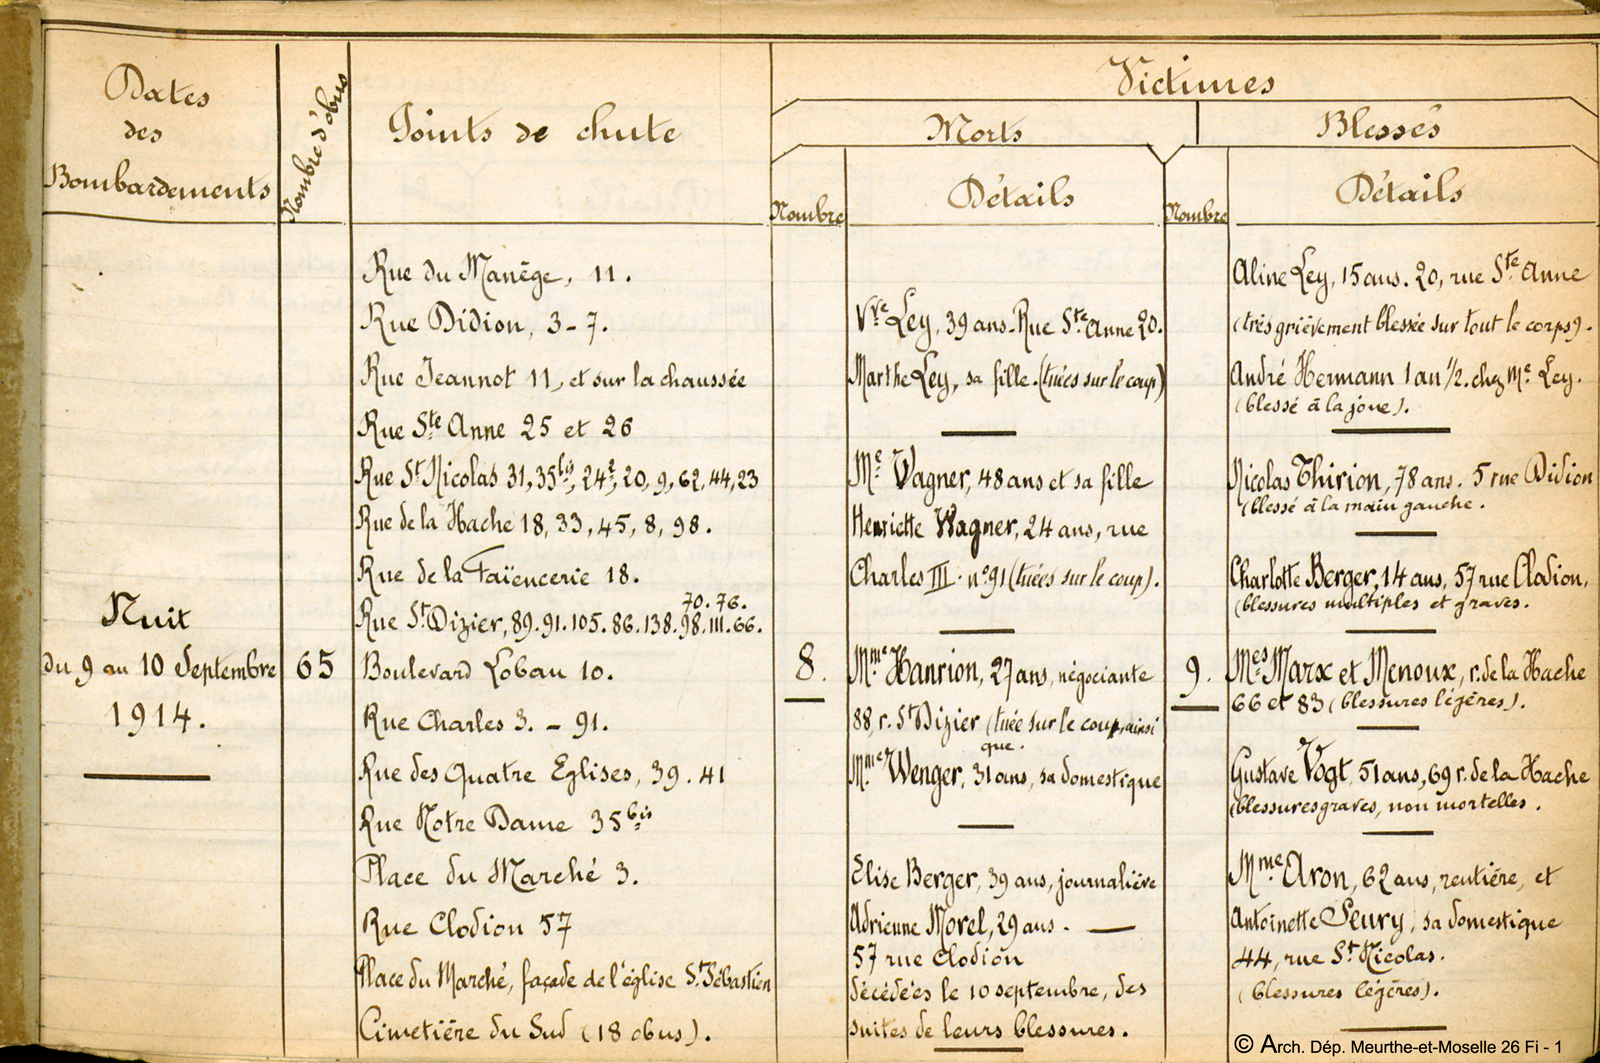 Dates
des
Bombardements
Nombre d'obus
Points de chute
Victimes
Morts
Blessés
Nombre
Détails
Nombre
Détails
Nuit
du 9 au 10 Septembre
1914.
65
Rue du Manège, 11.
Rue Didion, 3-7.
Rue Jeannot 11, et sur la chaussée
Rue Ste Anne 25 et 26
Rue St Nicolas 31, 35bis, 24², 20, 9, 62, 44, 23
Rue de la Hache 18, 33, 45, 8, 98.
Rue de la Faïencerie 18.
70. 76.
Rue St Dizier, 89. 91. 105. 86. 138. 98. 111. 66.
Boulevard Lobau 10.
Rue Charles 3. - 91.
Rue des Quatre Eglises, 39. 41
Rue Notre Dame 35bis
Place du Marché 3.
Rue Clodion 57
Place du Marché, façade de l'église St Sébastien
Cimetière du Sud (18 obus).
8.
Vve Ley, 39 ans. Rue Ste Anne 20.
Marthe Ley, sa fille. (tuées sur le coup)
Me Wagner, 48 ans et sa fille
Henriette Wagner, 24 ans, rue
Charles III. n° 91 (tuées sur le coup).
Mme Hanrion, 27 ans, négociante
88, r. St Dizier (tuée sur le coup, ainsi
que.
Mme Wenger, 31 ans, sa domestique
Elise Berger, 39 ans, journalière
Adrienne Morel, 29 ans. —
57 rue Clodion
décédées le 10 septembre, des
suites de leurs blessures.
9.
Aline Ley, 15 ans. 20, rue Ste Anne
(très grièvement blessée sur tout le corps).
André Hermann 1 an ½. chez Me Ley.
(blessé à la joue).
Nicolas Thirion, 78 ans. 5 rue Didion
(blessé à la main gauche.
Charlotte Berger, 14 ans, 57 rue Clodion,
(blessures multiples et graves.
Mes Marx et Menoux, r. de la Hache
66 et 83 (blessures légères).
Gustave Vogt, 51 ans, 69 r. de la Hache
(blessures graves, non mortelles.
Mme Aron, 62 ans, rentière, et
Antoinette Seury, sa domestique
44, rue St Nicolas.
(blessures légères).
© Arch. Dép. Meurthe-et-Moselle 26 Fi - 1